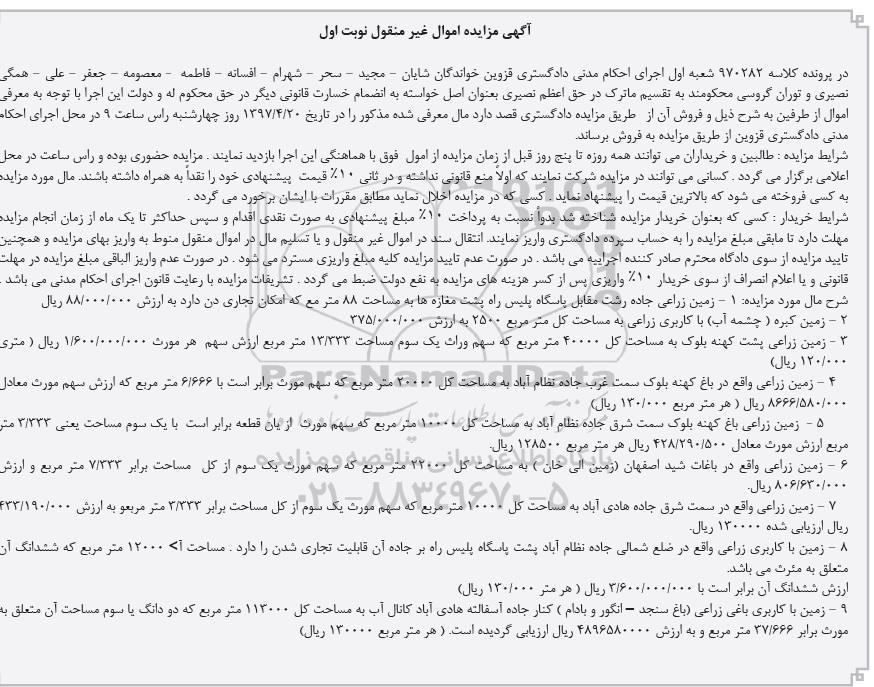 آگهی مزایده اموال غیر منقول نوبت اول
در پرونده کلاسه ۹۷۰۲۸۲ شعبه اول اجرای احکام مدنی دادگستری قزوین خواندگان شایان – مجید – سحر – شهرام – افسانه – فاطمه – معصومه – جعفر – علی – همگی
نصیری و توران گروسی محکومند به تقسیم ماترک در حق اعظم نصیری بعنوان اصل خواسته به انضمام خسارت قانونی دیگر در حق محکوم له و دولت این اجرا با توجه به معرفی
اموال از طرفین به شرح ذیل و فروش آن از طریق مزایده دادگستری قصد دارد مال معرفی شده مذکور را در تاریخ ۱۳۹۷/۴/۲۰ روز چهارشنبه راس ساعت ۹ در محل اجرای احکام
مدنی دادگستری قزوین از طریق مزایده به فروش برساند.
شرایط مزایده : طالبین و خریداران می توانند همه روزه تا پنج روز قبل از زمان مزایده از امول فوق با هماهنگی این اجرا بازدید نمایند . مزایده حضوری بوده و راس ساعت در محل
اعلامی برگزار می گردد . کسانی می توانند در مزایده شرکت نمایند که اولاً منع قانونی نداشته و در ثانی ۱۰٪ قیمت پیشنهادی خود را نقداً به همراه داشته باشند. مال مورد مزایده
به کسی فروخته می شود که بالاترین قیمت را پیشنهاد نماید . کسی که در مزایده اخلال نماید مطابق مقررات با ایشان برخورد می گردد .
شرایط خریدار : کسی که بعنوان خریدار مزایده شناخته شد بدواً نسبت به پرداخت ۱۰٪ مبلغ پیشنهادی به صورت نقدی اقدام و سپس حداکثر تا یک ماه از زمان انجام مزایده
مهلت دارد تا مابقی مبلغ مزایده را به حساب سپرده دادگستری واریز نمایند. انتقال سند در اموال غیر منقول و یا تسلیم مال در اموال منقول منوط به واریز بهای مزایده و همچنین
تایید مزایده از سوی دادگاه محترم صادر کننده اجراییه می باشد . در صورت عدم تایید مزایده کلیه مبلغ واریزی مسترد می شود . در صورت عدم واریز الباقی مبلغ مزایده در مهلت
قانونی و یا اعلام انصراف از سوی خریدار ۱۰٪ واریزی پس از کسر هزینه های مزایده به نفع دولت ضبط می گردد . تشریفات مزایده با رعایت قانون اجرای احکام مدنی می باشد .
شرح مال مورد مزایده: ۱ – زمین زراعی جاده رشت مقابل پاسگاه پلیس راه پشت مغازه ها به مساحت ۸۸ متر مع که امکان تجاری دن دارد به ارزش ۸۸/۰۰۰/۰۰۰ ریال
۲ – زمین کبره ( چشمه آب) با کاربری زراعی به مساحت کل متر مربع ۲۵۰۰ به ارزش ۳۷۵/۰۰۰/۰۰۰
۳ – زمین زراعی پشت کهنه بلوک به مساحت کل ۴۰۰۰۰ متر مربع که سهم وراث یک سوم مساحت ۱۳/۳۳۳ متر مربع ارزش سهم هر مورث ۱/۶۰۰/۰۰۰/۰۰۰ ریال ( متری
۱۲۰/۰۰۰ ریال)
۴ – زمین زراعی واقع در باغ کهنه بلوک سمت غرب جاده نظام آباد به مساحت کل ۲۰۰۰۰ متر مربع که سهم مورث برابر است با ۶/۶۶۶ متر مربع که ارزش سهم مورث معادل
۸۶۶۶/۵۸۰/۰۰۰ ریال ( هر متر مربع ۱۳۰/۰۰۰ ریال)
۵ – زمین زراعی باغ کهنه بلوک سمت شرق جاده نظام آباد به مساحت کل ۱۰۰۰۰ متر مربع که سهم مورث از یان قطعه برابر است با یک سوم مساحت یعنی ۳/۳۳۳ متر
مربع ارزش مورث معادل ۴۲۸/۲۹۰/۵۰۰ ریال هر متر مربع ۱۲۸۵۰۰ ریال.
۶ – زمین زراعی واقع در باغات شید اصفهان (زمین الی خان ) به مساحت کل ۲۲۰۰۰ متر مربع که سهم مورث یک سوم از کل مساحت برابر ۷/۳۳۳ متر مربع و ارزش
۸۰۶/۶۳۰/۰۰۰ ریال.
۷ – زمین زراعی واقع در سمت شرق جاده هادی آباد به مساحت کل ۱۰۰۰۰ متر مربع که سهم مورث یک سوم از کل مساحت برابر ۳/۳۳۳ متر مربعو به ارزش ۴۳۳/۱۹۰/۰۰۰
ریال ارزیابی شده ۱۳۰۰۰۰ ریال.
۸ – زمین با کاربری زراعی واقع در ضلع شمالی جاده نظام آباد پشت پاسگاه پلیس راه بر جاده آن قابلیت تجاری شدن را دارد . مساحت آ> ۱۲۰۰۰ متر مربع که ششدانگ آن
متعلق به مئرث می باشد.
ارزش ششدانگ آن برابر است با ۳/۶۰۰/۰۰۰/۰۰۰ ریال ( هر متر ۱۳۰/۰۰۰ ریال)
۹ – زمین با کاربری باغی زراعی (باغ سنجد – انگور و بادام ) کنار جاده آسفالته هادی آباد کانال آب به مساحت کل ۱۱۳۰۰۰ متر مربع که دو دانگ یا سوم مساحت آن متعلق به
مورث برابر ۳۷/۶۶۶ متر مربع و به ارزش ۴۸۹۶۵۸۰۰۰۰ ریال ارزیابی گردیده است. ( هر متر مربع ۱۳۰۰۰۰ ریال)
ParsNamadData
پایگاه اطلاع رسانی مناقصه و مزایده
۰۲۱-۸۸۳۴۹۶۷۰-۵